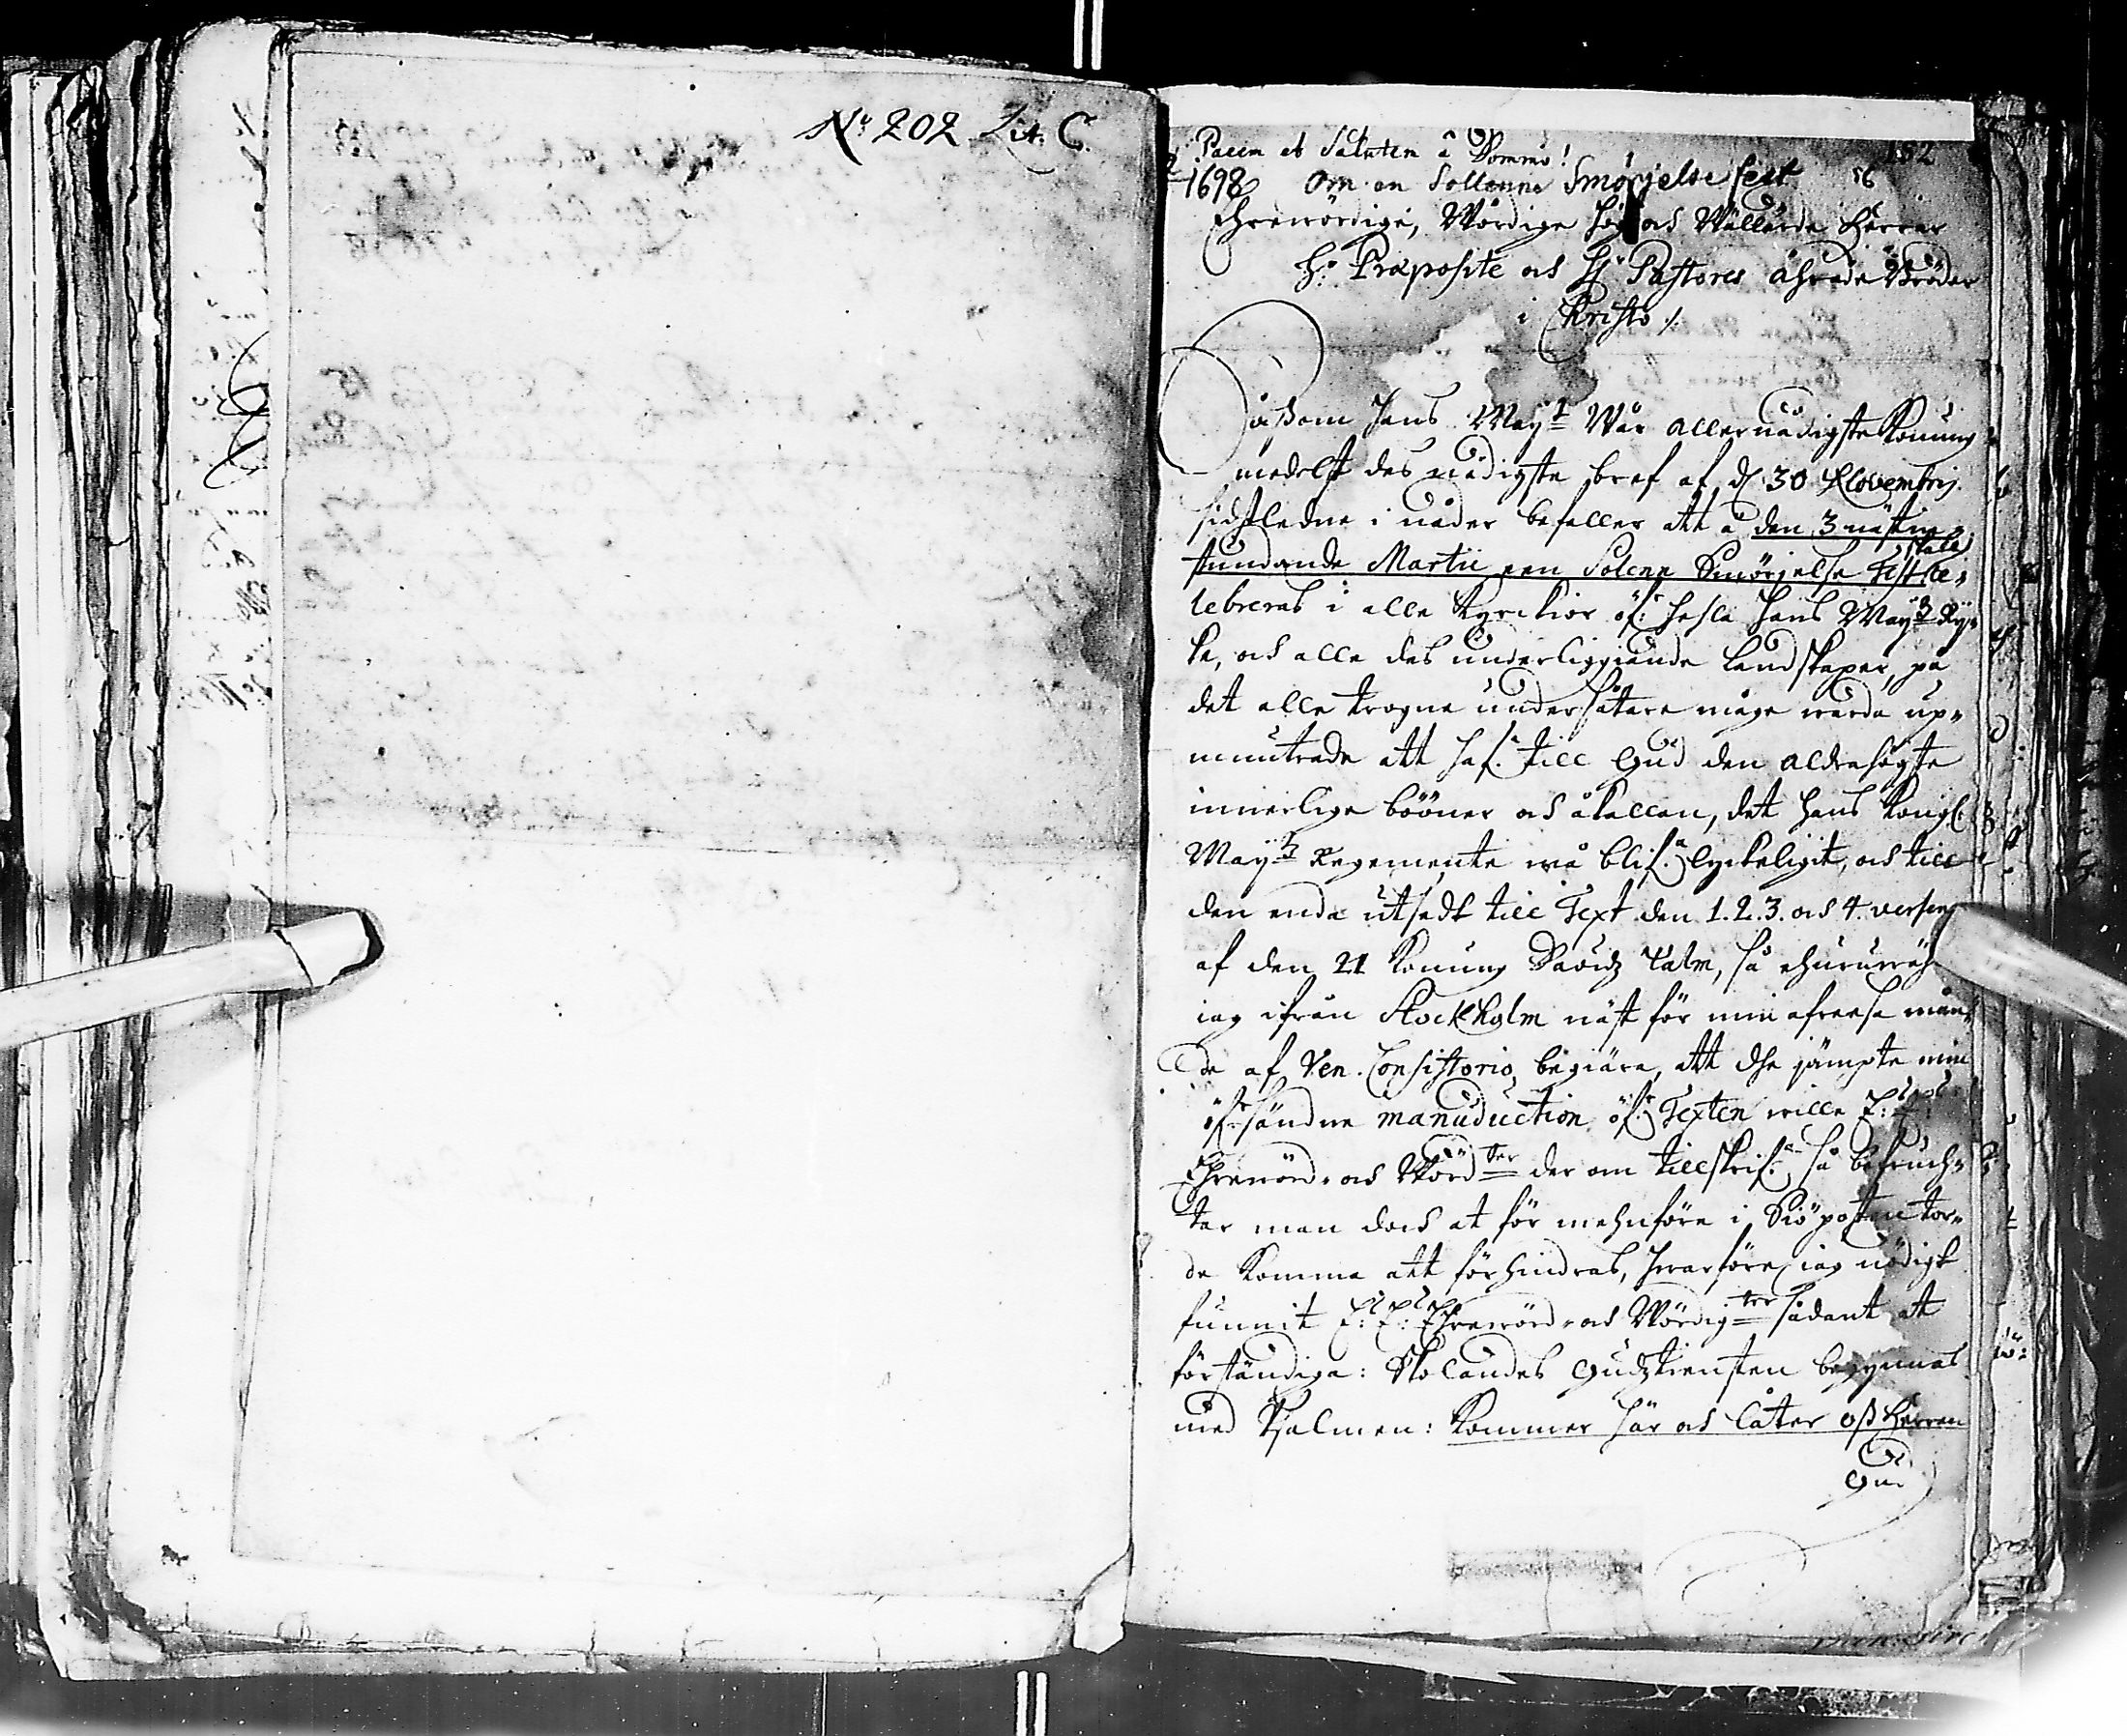 No 202 Lit. C.
182
Pacem et Salutem â Domino!
1698 Om en Sollenne Smörjelse fest 56
Ehrewördige, Wördige Hög och Wällärde Herrar
H:r Præposite och H:r Pastores åhrade Bröder
i Christo ./.
Såssom Hans May:t Wår allernådigste Konung
medelst des nådigste bref af d 30 Novembris
sidstledne i nåder befaller att å den 3 nästin-
stundande Martii een Solenn Smörjelse Fest skall ce-
lebreras i alla Kyrckior öf:r hehla Hans May:tz Ry-
ke, och alla des underliggiande landskaper, på
det alla trogne undersåtare måge warda up-
muntrade att haf:a till Gud den aldrahögste
innerlige bööner och åkallan, det Hans Kongl.
May:tz Regemente må blif:a lyckeligit, och till
den enda utsedt till Text den 1. 2. 3. och 4. versen
af den 21 Konung Davidz Psalm, så ehuruwähl
iag ifrån Stockholm näst för min afreesa mån-
de af Ven. Consistorio begiära, att dhe jämpte min
öf:rsändne manuduction öf:r Texten wille E: E:
Ehrewörd. och Wörd:ter der om tillskrif:a så befruch-
tar man doch at för mehnföre i Siöposten tor-
de komma att förhindras, hwarföre iag nödigt
funnit E: E: Ehrewörd. och Wördig:ter sådant att
förständiga: Skolandes Gudztiensten begynnas
med Psalmen: Kommer här och låter oss Herren
Gud